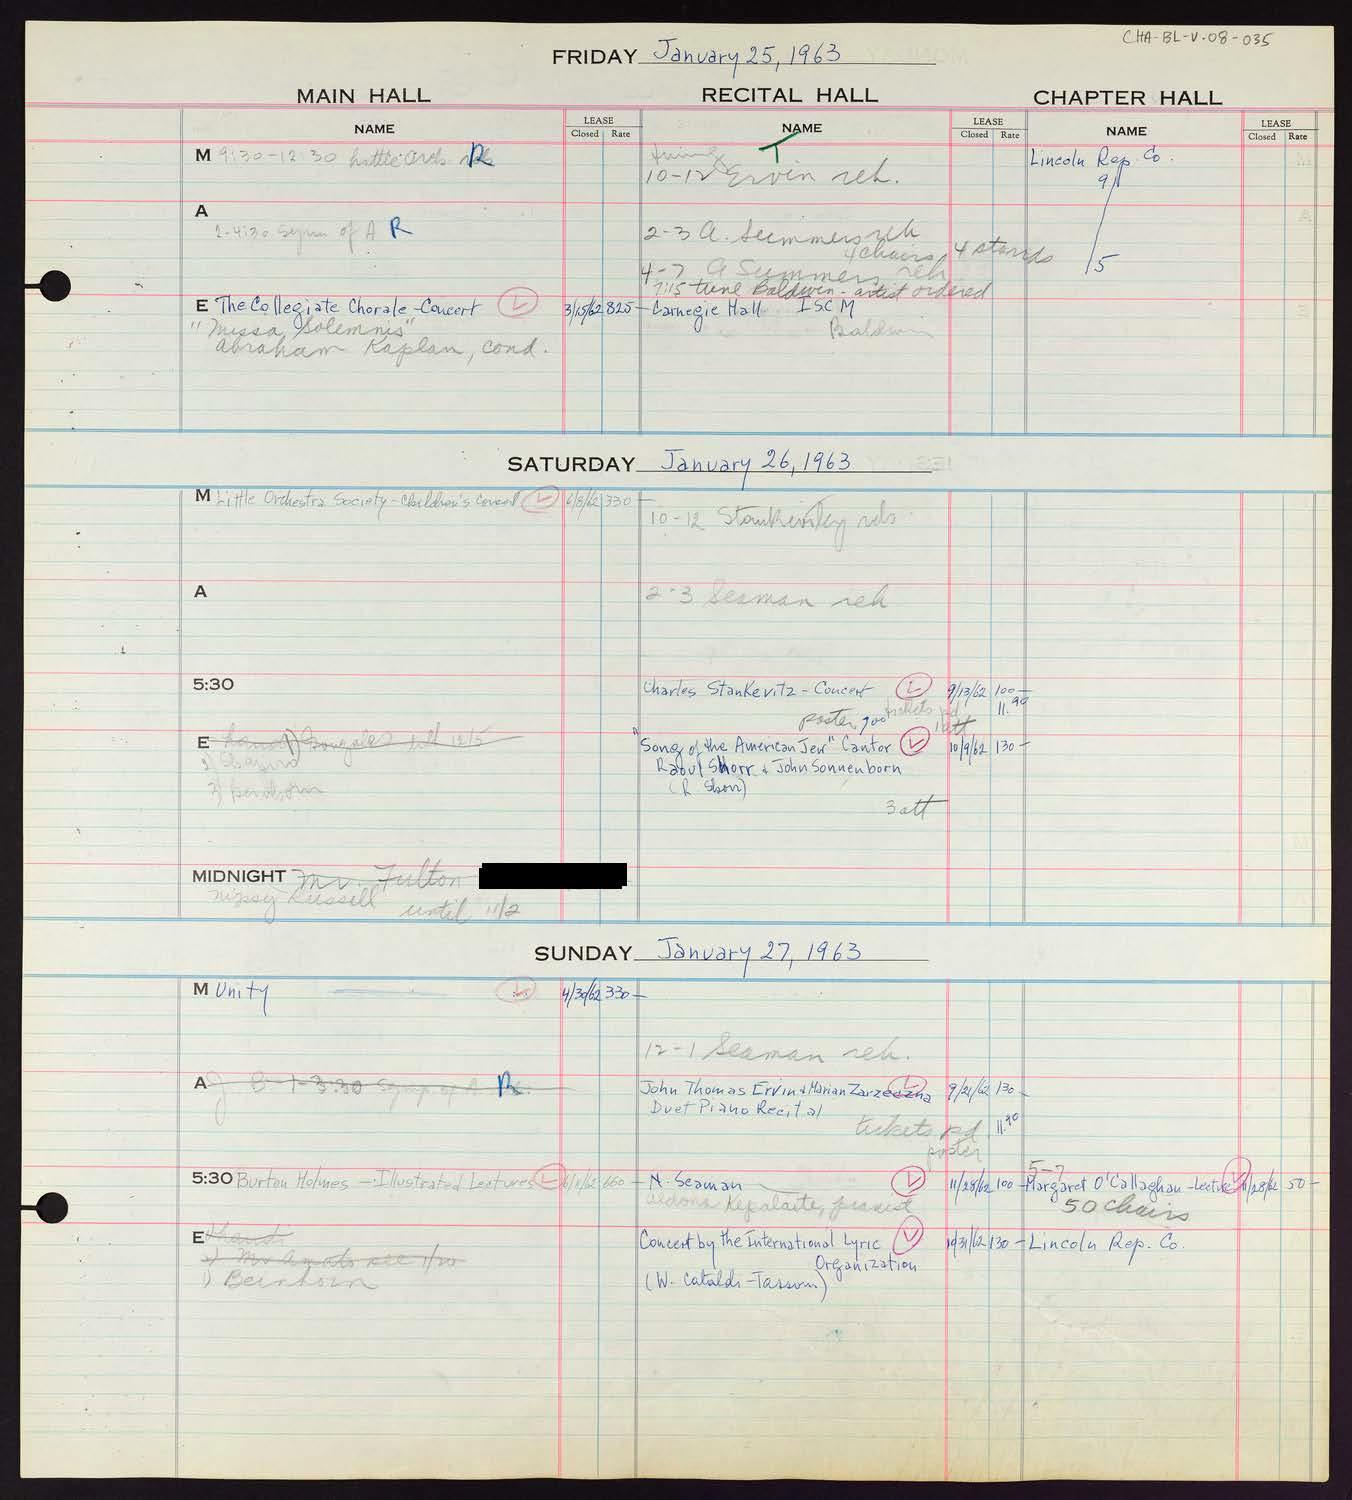 CHA-BL-V-08-035
FRIDAY January 25, 1963
MAIN HALL
RECITAL HALL
CHAPTER HALL
NAME
LEASE
Closed Rate
NAME
LEASE
Closed Rate
NAME
LEASE
Closed Rate
M 9:30-12:30 Little Orch. reh R
Irving
10-12 Ervin reh.
T
Lincoln Rep. Co.
9
A
2-4:30 Sym of A R
2-3 A. Summers reh
4 chairs, 4 stands
4-7 A Summers reh
7:15 tune Baldwin - artist ordered
5
E The Collegiate Chorale - Concert L 3/15/62 825-
"Missa Solemnis"
Abraham Kaplan, cond.
Carnegie Hall ISCM
Baldwin
SATURDAY January 26, 1963
M Little Orchestra Society - Children's Concert L 6/8/62 330-
10-12 reh
A
2-3 Seaman reh
5:30
Charles Stankevitz - Concert L 9/13/62 100-
tickets pd 11.90
poster
1 att
E Gonzales till 12/5
2)
3)
"Song of the American Jew" Cantor L 10/9/62 130-
Raoul Shorr & John Sonnenborn
(R Shorr)
3 att
MIDNIGHT Mr. Fulton
Nipsey Russell until 11/2
SUNDAY January 27, 1963
M Unity L 4/30/62 330-
12-1 Seaman reh.
A 1-3:30 Symp. of A R
John Thomas Ervin & Marian Zarzeczna L 9/21/62 130-
Duet Piano Recital
tickets pd. 11.90
poster
5:30 Burton Holmes - Illustrated Lectures L 6/1/62 660-
N. Seaman L 11/28/62 100-
Aldona Kepalaite, pianist
5-7
Margaret O'Callaghan - Lecture L 11/28/62 50-
50 chairs
E
2) Mr Amato see 1/20
1) Beinhorn
Concert by the International Lyric L 10/31/62 130-
Organization
(W. Cataldi-Tassoni)
Lincoln Rep. Co.